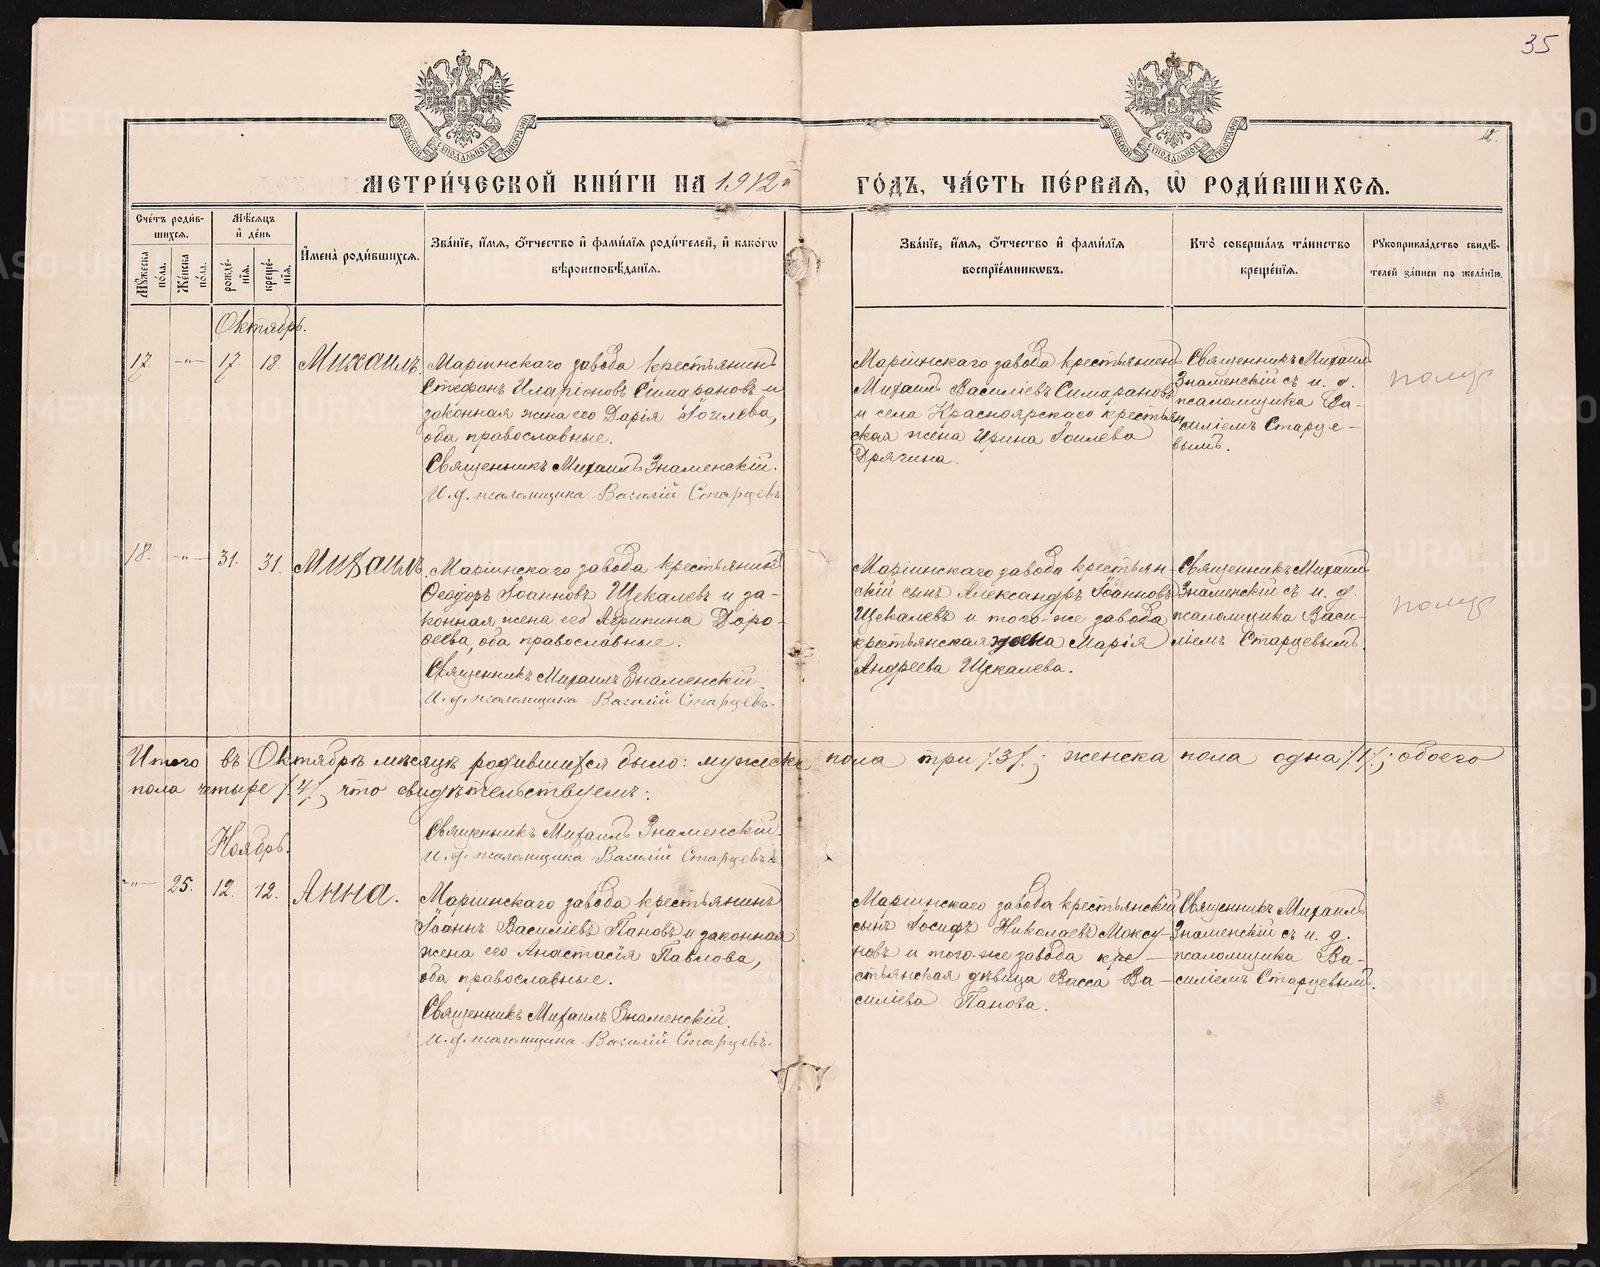 35
12.
МЕТРИ́ЧЕСКОЙ КНИ́ГИ НА 1912й
ГО́ДЪ, ЧА́СТЬ ПЕ́РВАЯ, Ѡ҆ РОДИ́ВШИХСЯ.
Сче́тъ роди́в-
шихся.
Мꙋ́жеска
по́ла.
Же́нска
по́ла.
Мѣ́сяцъ
и҆ де́нь
рожде́-
нїя.
креще́-
нїя.
И҆мена̀ роди́вшихся.
Зва́нїе, и҆́мя, ѻ҆́тчество и҆ фами́лїя роди́телей, и҆ како́гѡ
вѣроисповѣ́данїя.
Зва́нїе, и҆́мя, ѻ҆́тчество и҆ фами́лїя
воспрїе́мникѡвъ.
Кто̀ соверша́лъ та́инство
креще́нїя.
Рꙋкоприкла́дство свидѣ́-
телей за́писи по жела́нїю.
Октябрь.
17 -"- 17. 18. Михаилъ.
Маріинскаго завода крестьянинъ
Стефанъ Иларіоновъ Симарановъ и
законная жена его Дарія Іоилева,
оба православные.
Священникъ Михаилъ Знаменскій.
И. д. псаломщика Василій Старцевъ
Маріинскаго завода крестьянинъ
Михаилъ Василіевъ Симарановъ
и села Красноярскаго крестьян
ская жена Ирина Іоилева
Дрягина.
Священникъ Михаилъ
Знаменскій съ и. д.
псаломщика Ва-
силіемъ Старце-
вымъ.
18. -"- 31. 31. Михаилъ.
Маріинскаго завода крестьянинъ
Ѳеодоръ Іоанновъ Щекалевъ и за-
конная жена его Агрипина Доро-
ѳеева, оба православные.
Священникъ Михаилъ Знаменскій
И. д. псаломщика Василій Старцевъ.
Маріинскаго завода крестьян-
скій сынъ Александръ Іоанновъ
Щекалевъ и того-же завода
крестьянская жена Марія
Андреева Щекалева.
Священникъ Михаилъ
Знаменскій съ и. д.
псаломщика Васи-
ліемъ Старцевымъ.
Итого въ Октябрѣ мѣсяцѣ родившихся было: мужеска пола три /3/; женска пола одна /1/; обоего
пола четыре /4/, что свидѣтельствуемъ:
Священникъ Михаилъ Знаменскій
И. д. псаломщика Василій Старцевъ
Ноябрь.
-"- 25. 12. 12. Анна.
Маріинскаго завода крестьянинъ
Іоаннъ Василіевъ Пановъ и законная
жена его Анастасія Павлова,
оба православные.
Священникъ Михаилъ Знаменскій.
И. д. псаломщика Василій Старцевъ.
Маріинскаго завода крестьянскій
сынъ Іосифъ Николаевъ Моксу-
новъ и того-же завода кре-
стьянская дѣвица Васса Ва-
силіева Панова.
Священникъ Михаилъ
Знаменскій съ и. д.
псаломщика Ва-
силіемъ Старцевымъ.
METRIKI.GASO-URAL.RU